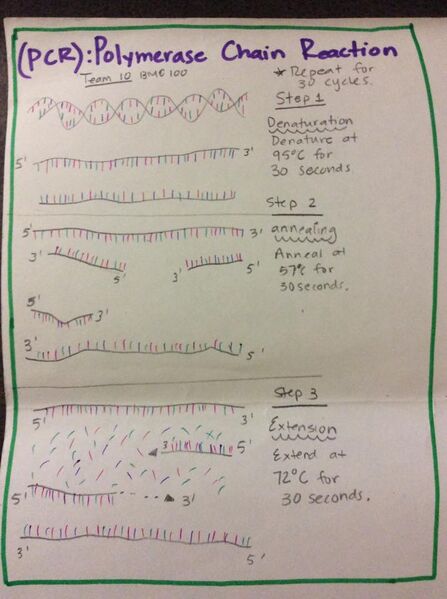 (PCR): Polymerase Chain Reaction
Team 10 BME 100
* Repeat for
30 cycles.
Step 1
Denaturation
Denature at
95°C for
30 seconds
5' 3'
Step 2
annealing
Anneal at
57°C for
30 seconds.
5' 3'
3' 5' 3' 5'
5' 3'
3' 5'
Step 3
Extension
Extend at
72°C for
30 seconds.
5' 3'
3' 5'
5' 3'
3' 5'